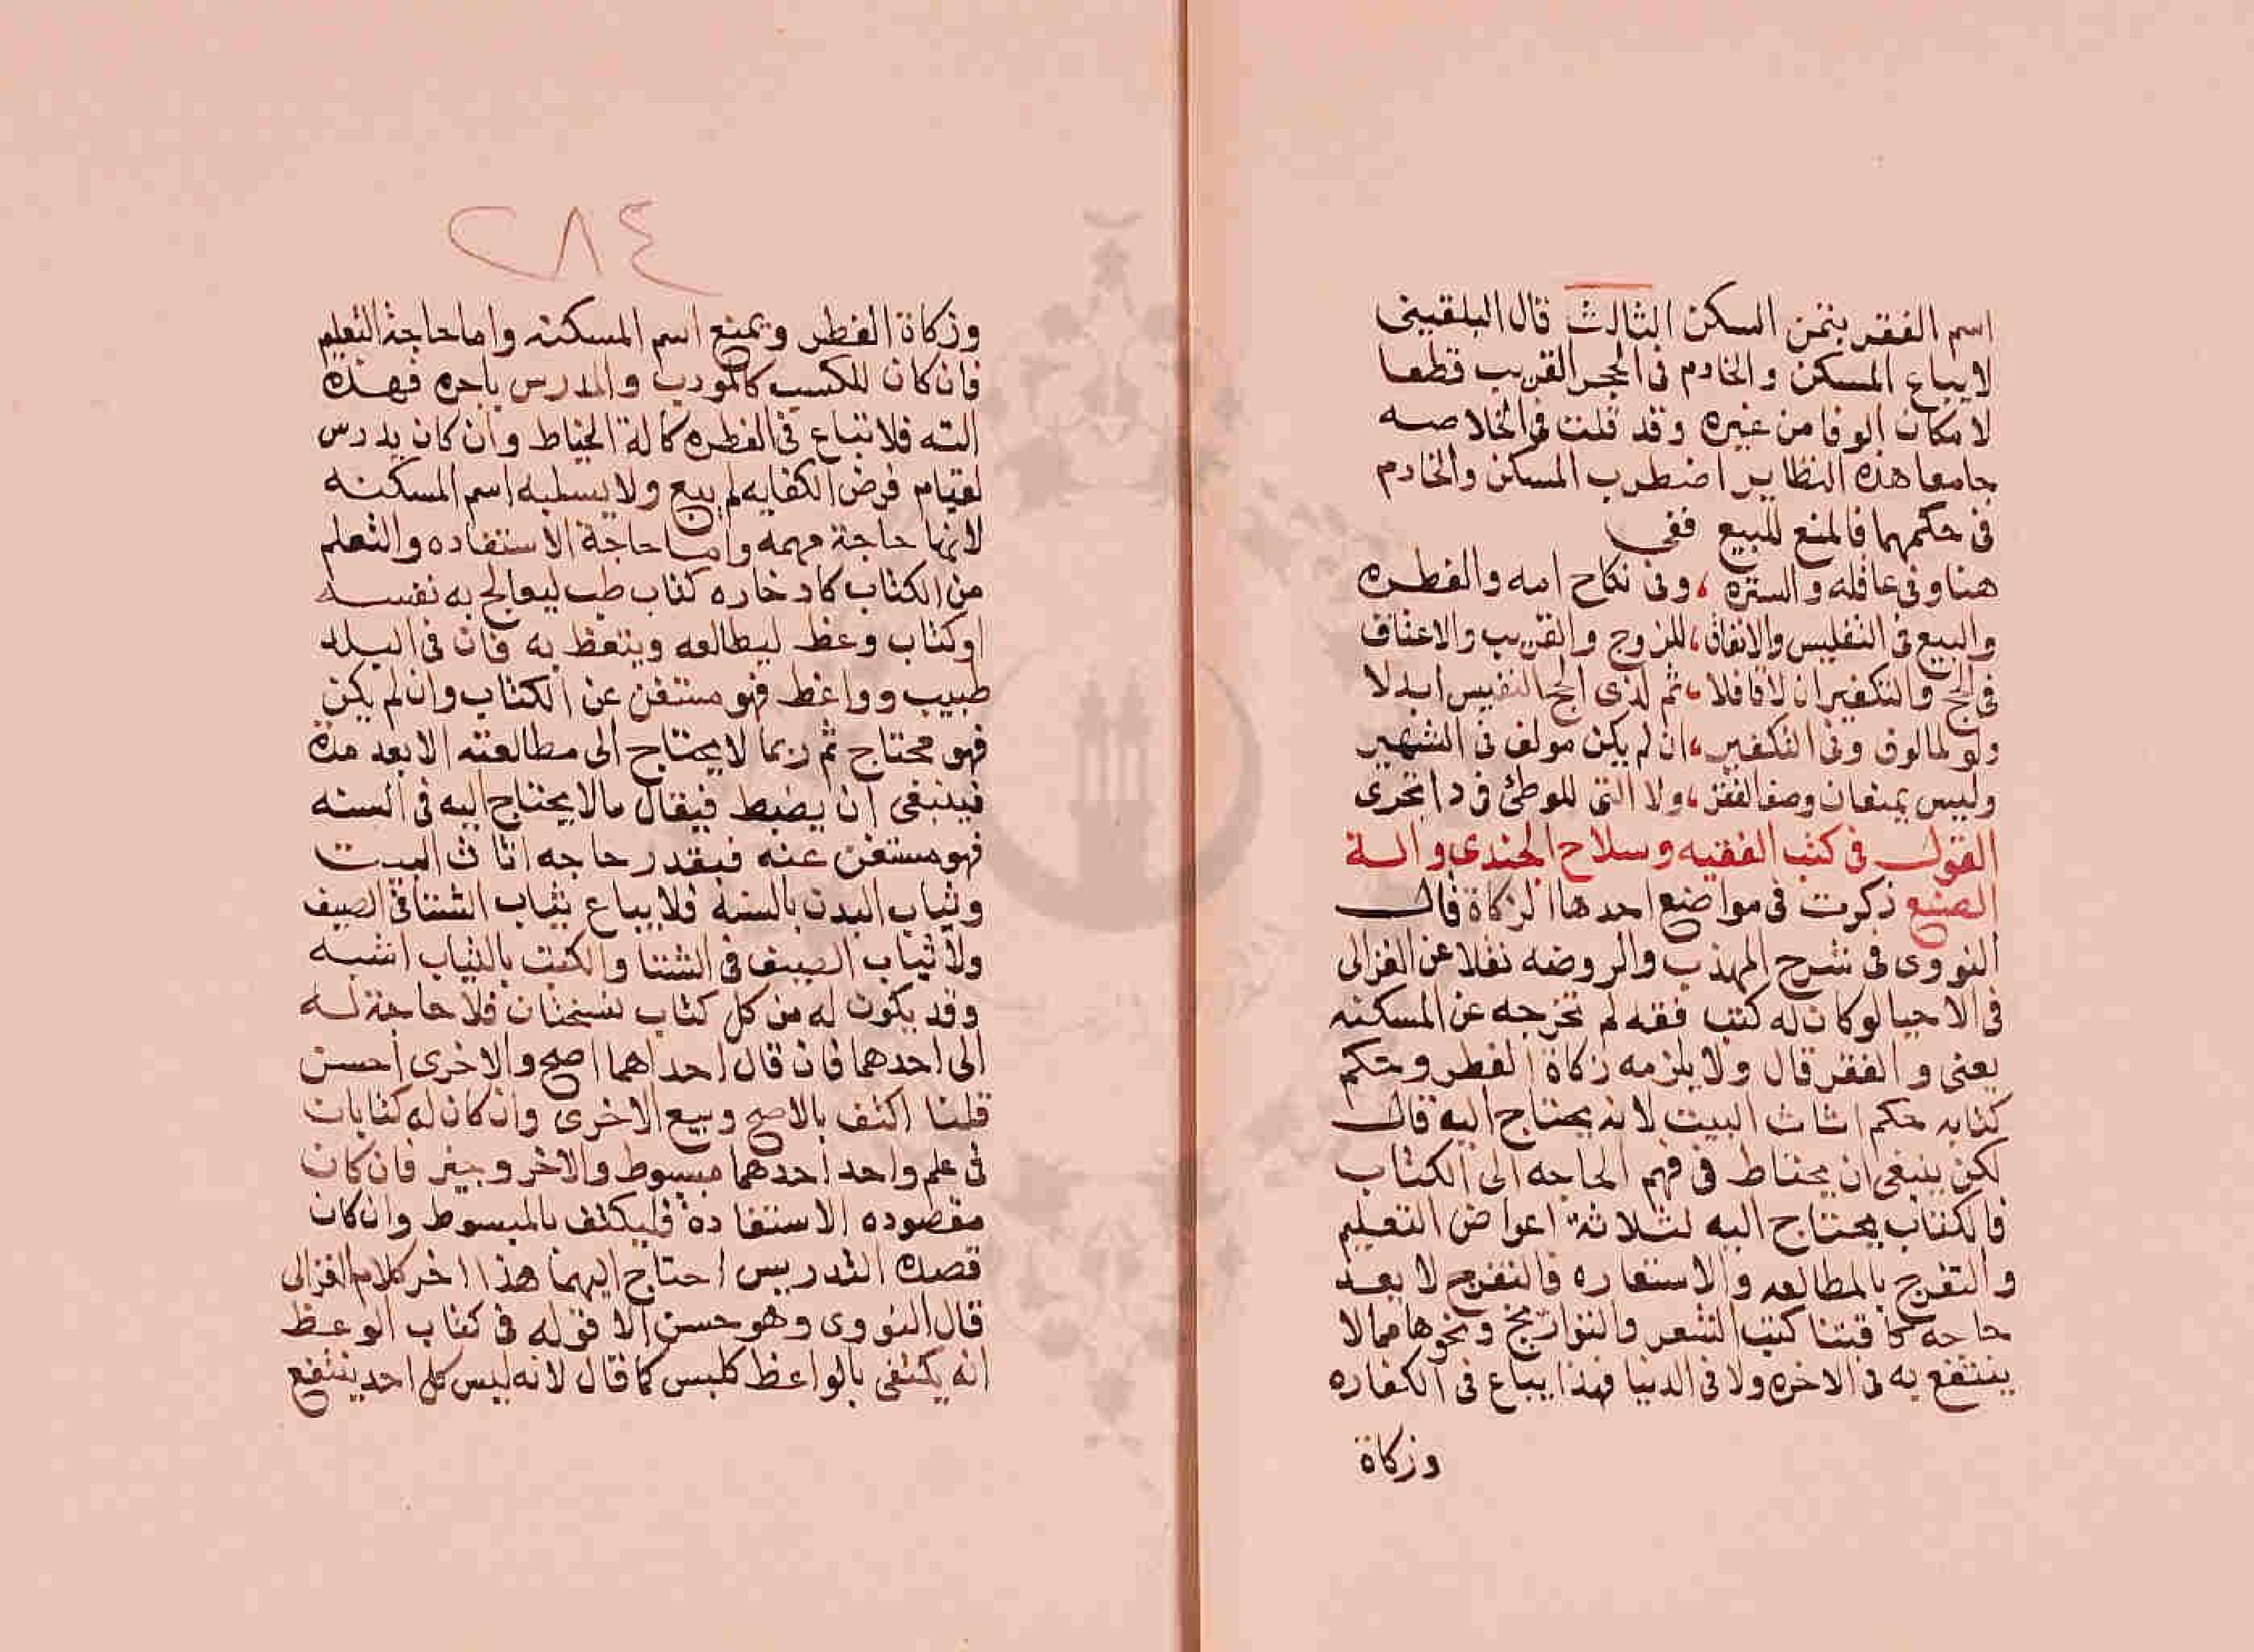 اسم الفقر بثمن السكن الثالث قال البلقينى
لا يباع المسكن والخادم فى الحجر القريب قطعا
لامكان الوفا من غيره وقد قلت فى الخلاصه
جامعا هذه النظاير اضطرب المسكن والخادم
فى حكمهما فالمنع للمبيع ففى
هنا وفى عاقله والستره ، وفى نكاح امه والفطره
والبيع فى التفليس والانفاق ، للزوج والقريب والاعتاق
فى الحج والتكفير ان لاقا فلا ، ثم لذى الحج النفيس ابدلا
ولو لمالوف وفى التكفير ، ان لم يكن مولف فى الشهير
وليس يمنعان وصف الفقر ، ولا التى للموطئ فى دا تجرى
القول فى كتب الفقيه وسلاح الجندى والة
الصنع ذكرت فى مواضع احدها الزكاة قال
النووى فى شرح المهذب والروضه نقلا عن الغزالى
فى الاحيا لو كان له كتب فقه لم تخرجه عن المسكنه
يعنى والفقر قال ولا يلزمه زكاة الفطر وحكم
كتابه حكم اثاث البيت لانه يحتاج اليه قال
لكن ينبغى ان يحتاط فى فهم الحاجه الى الكتاب
فالكتاب يحتاج اليه لثلاثة اغراض التعليم
والتفرج بالمطالعه والاستفاره فالتفرج لا يعد
حاجه كاقتنا كتب الشعر والتواريخ ونحوها مما لا
ينتفع به فى الاخره ولا فى الدنيا فهذا يباع فى الكفاره
وزكاة
٢٨٤
وزكاة الفطر ويمنع اسم المسكنه واما حاجة التعليم
فان كان للمكتسب كالمودب والمدرس باجره فهذه
الته فلا تباع فى الفطره كالة الخياط وان كان يدرس
لقيام فرض الكفايه لم يبع ولا يسلبه اسم المسكنه
لانها حاجة مهمه واما حاجة الاستفاده والتعلم
من الكتاب كادخاره كتاب طب ليعالج به نفسه
او كتاب وعظ ليطالعه ويتعظ به فان فى البلد
طبيب وواعظ فهو مستغن عن الكتاب وان لم يكن
فهو محتاج ثم ربما لا يحتاج الى مطالعته الا بعد مدة
فينبغى ان يضبط فيقال مالا يحتاج اليه فى السنه
فهو مستغن عنه فيقدر حاجه اثاث البيت
وثياب البدن بالسنة فلا يباع ثياب الشتا فى الصيف
ولا ثياب الصيف فى الشتا والكتب بالثياب اشبه
وقد يكون له من كل كتاب نسختان فلا حاجة له
الى احدهما فان قال احداهما اصح والاخرى احسن
قلنا اكتف بالاصح وبيع الاخرى وان كان له كتابان
فى علم واحد احدهما مبسوط والاخر وجيز فان كان
مقصوده الاستفادة فليكتف بالمبسوط وان كان
قصده التدريس احتاج اليهما هذا اخر كلام الغزالى
قال النووى وهو حسن الا قوله فى كتاب الوعظ
انه يكتفى بالواعظ كليس كما قال لانه ليس كل احد ينتفع